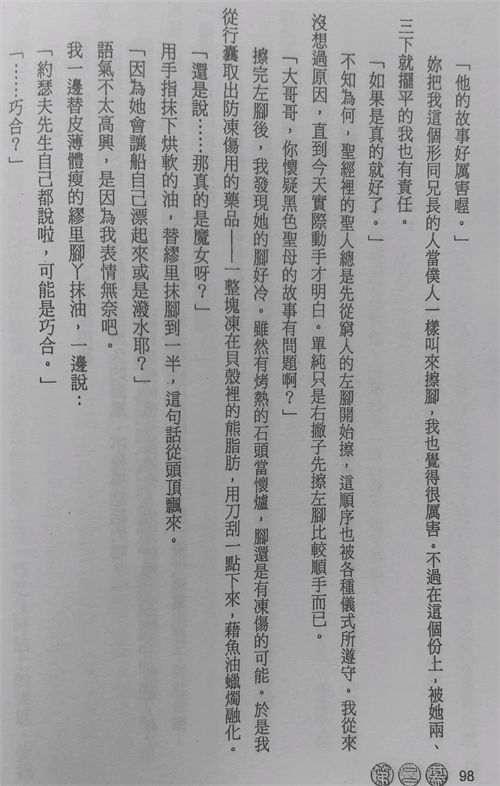 「他的故事好厲害喔。」
妳把我這個形同兄長的人當僕人一樣叫來擦腳，我也覺得很厲害。不過在這個份上，被她兩、
三下就擺平的我也有責任。
「如果是真的就好了。」
不知為何，聖經裡的聖人總是先從窮人的左腳開始擦，這順序也被各種儀式所遵守。我從來
沒想過原因，直到今天實際動手才明白。單純只是右撇子先擦左腳比較順手而已。
「大哥哥，你懷疑黑色聖母的故事有問題啊？」
擦完左腳後，我發現她的腳好冷。雖然有烤熱的石頭當懷爐，腳還是有凍傷的可能。於是我
從行囊取出防凍傷用的藥品——一整塊凍在貝殼裡的熊脂肪，用刀刮一點下來，藉魚油蠟燭融化。
「還是說……那真的是魔女呀？」
用手指抹下烘軟的油，替繆里抹腳到一半，這句話從頭頂飄來。
「因為她會讓船自己漂起來或是潑水耶？」
語氣不太高興，是因為我表情無奈吧。
我一邊替皮薄體瘦的繆里腳丫抹油，一邊說：
「約瑟夫先生自己都說啦，可能是巧合。」
「……巧合？」
第二幕
98